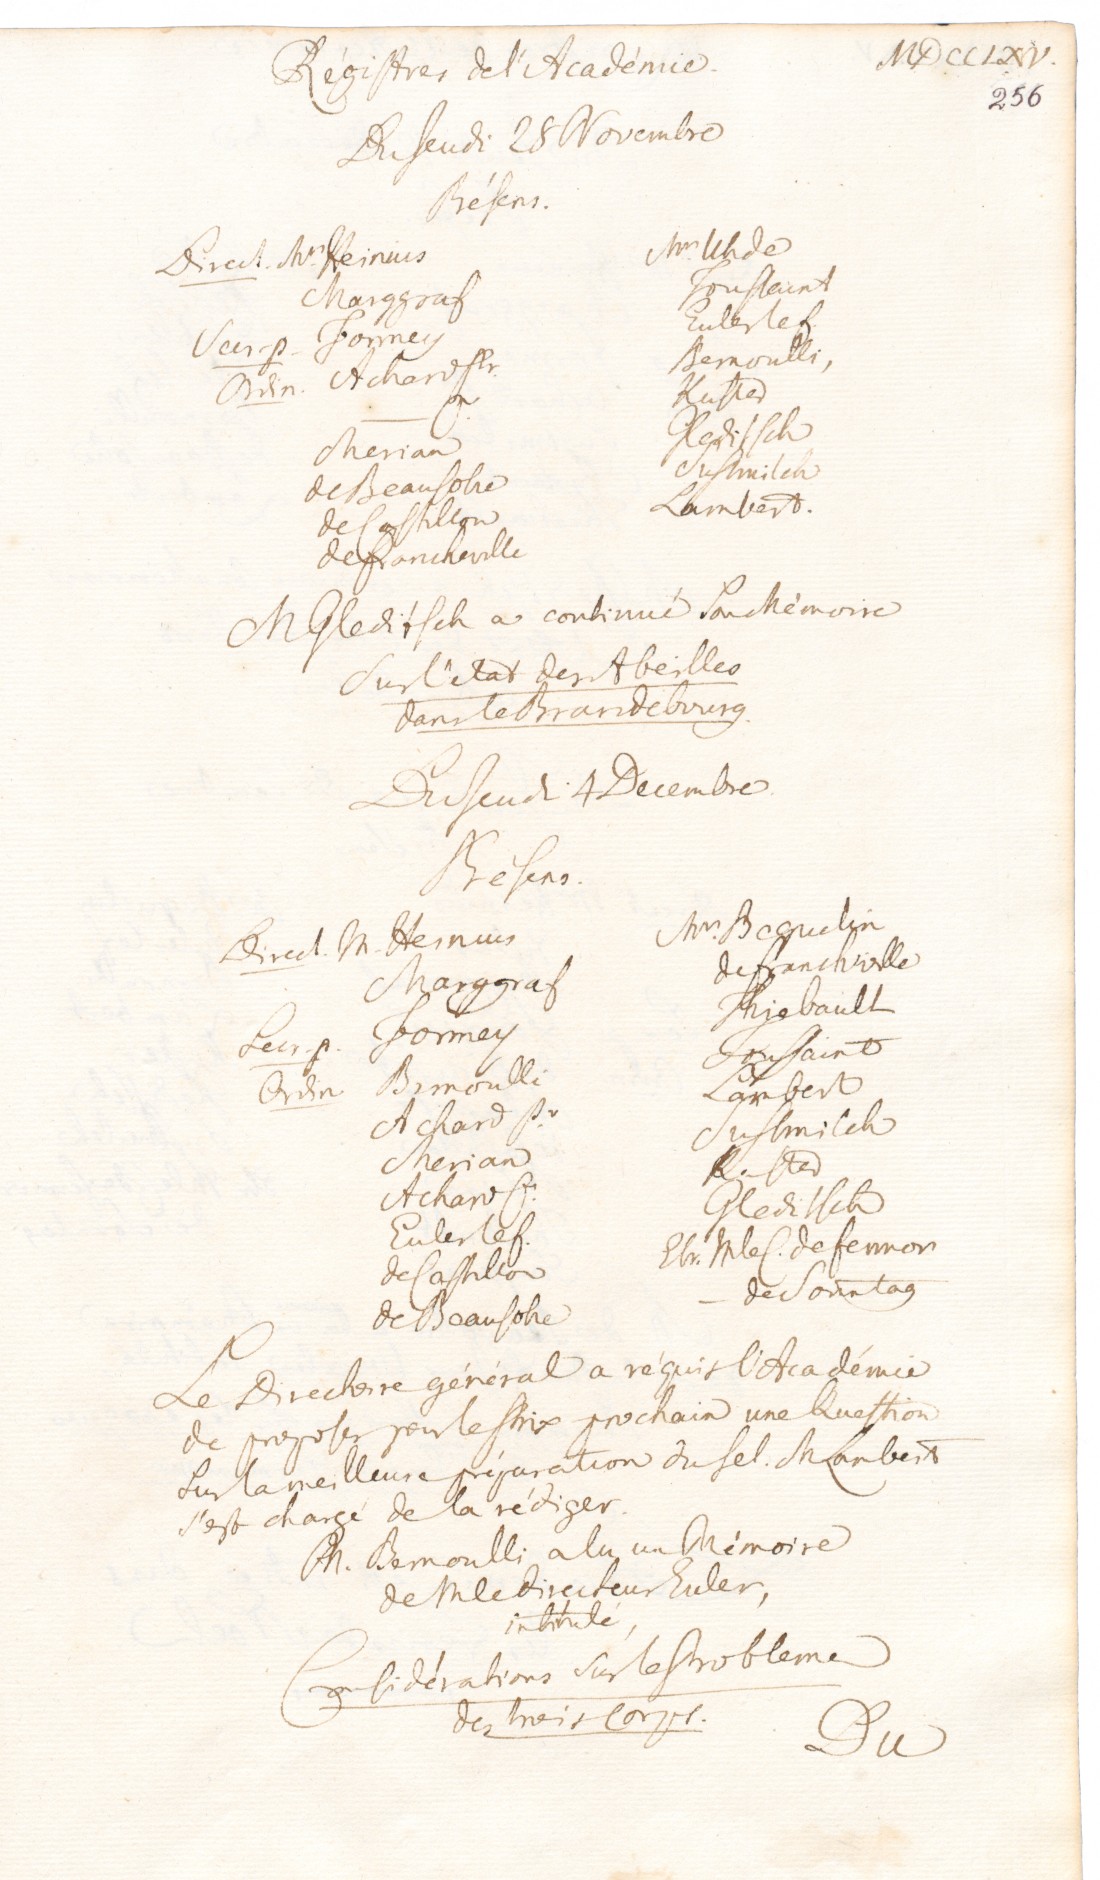 Régistres de l'Académie.
MDCCLXV.
256
Du Jeudi 28 Novembre
Présens.
Direct. Mrs. Heinius
Marggraf
Secr. p. Formey
Ordin. Achard Pr.
— fr.
Merian
de Beausobre
de Castillon
de Francheville
Mrs. Uhde
Toussaint
Euler le f.
Bernoulli,
Kuster
Gleditsch
Sussmilch
Lambert.
M Gleditsch a continué son Mémoire
sur l'état des Abeilles
dans le Brandebourg.
Du Jeudi 4 Decembre
Présens.
Direct. M. Heinius
Marggraf
Secr. p. Formey
Ordin Bernoulli
Achard Pr
Merian
Achard fr.
Euler le f.
de Castillon
de Beausobre
Mrs. Beguelin
de Francheville
Thiebault
Toussaint
Lambert
Sussmilch
Kuster
Gleditsch
Etr. M le C. de
— de Sonntag
Le Directoire général a réquis l'Académie
de proposer pour le Prix prochain une Question
sur la meilleure préparation du sel. M Lambert
s'est chargé de la rédiger.
M. Bernoulli a lu un Mémoire
de M le Directeur Euler,
intitulé,
Considérations sur le Probleme
des trois Corps.
Du